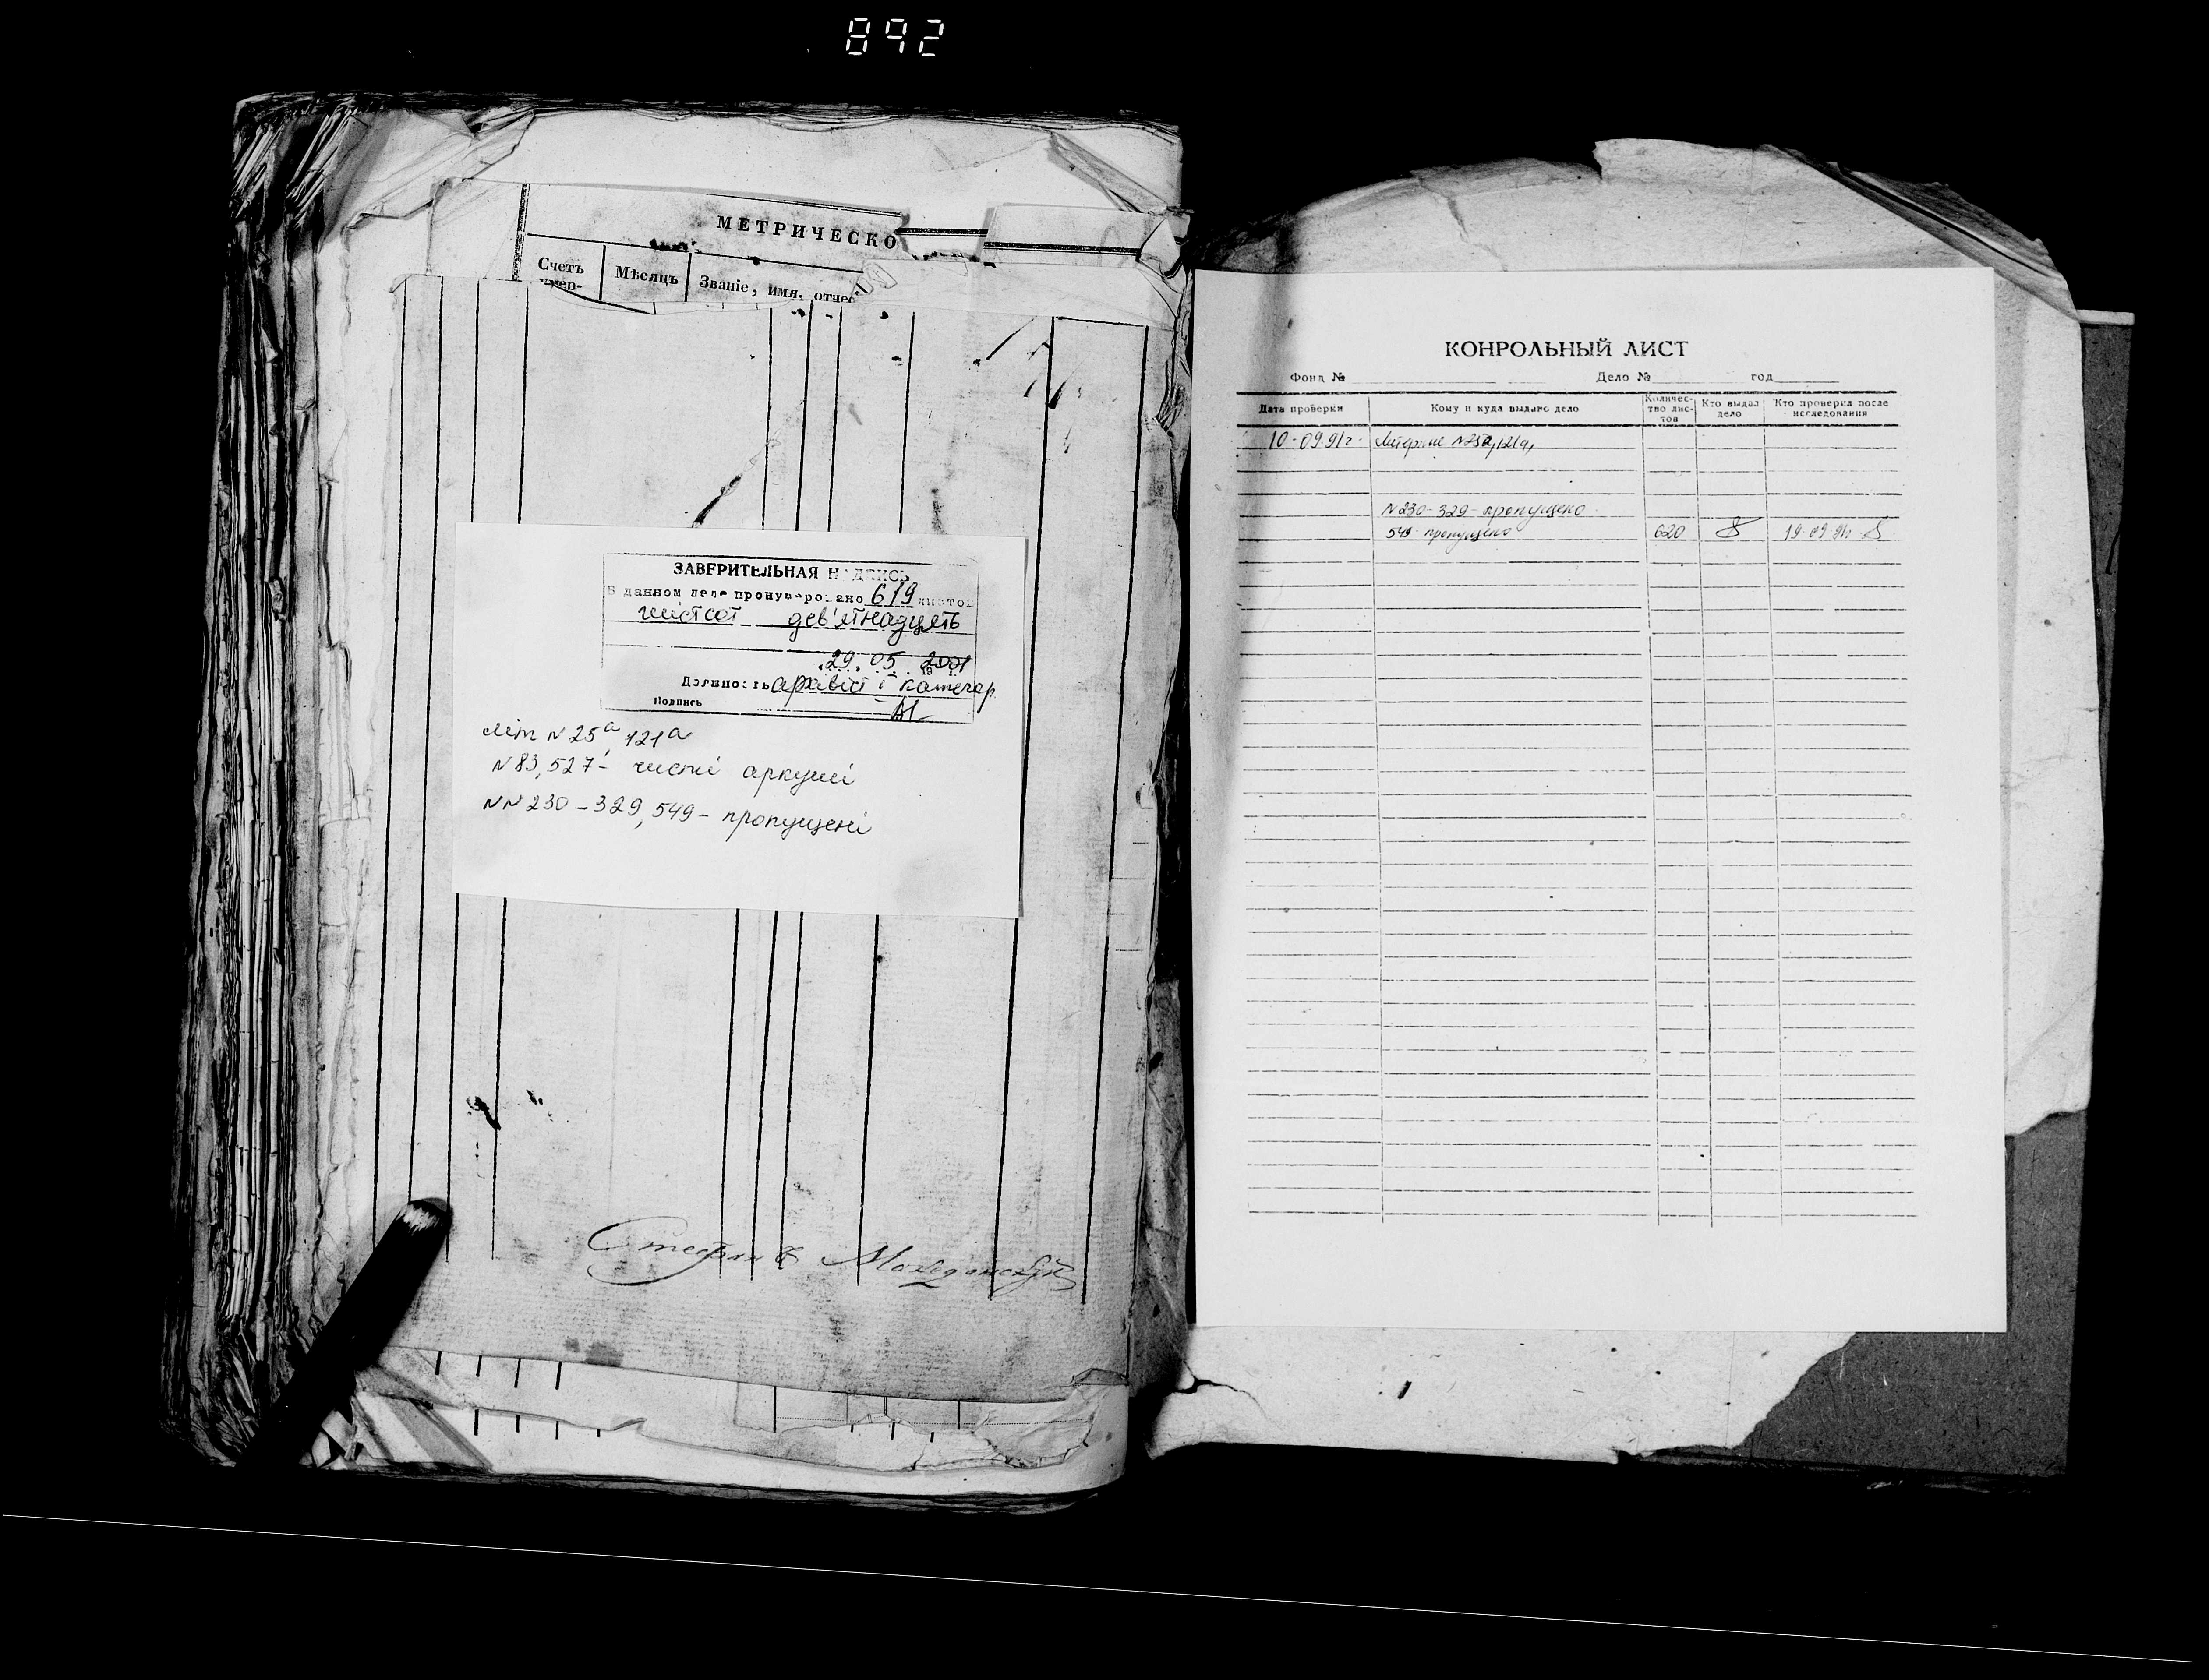 892
МЕТРИЧЕСКО
Счетъ
Мѣсяцъ
Званіе, имя, отчес
ЗАВЕРИТЕЛЬНАЯ НАДПИСЬ
В данном деле пронумеровано 619 листов
шістсот дев'ятнадцять
29. 05. 2001
Должность архівіст І категор.
Подпись
літ N 25а, 121а
N 83, 527 - чисті аркуші
NN 230-329, 549 - пропущені
Стефан Македонскій
КОНРОЛЬНЫЙ ЛИСТ
Фонд № Дело № год
Дата проверки
Кому и куда выдано дело
Количес-
тво лис-
тов
Кто выдал
дело
Кто проверил после
исследования
10-09.91г. Литерные N25а, 121а,
N230-329-пропущено
549-пропущено 620 19.09.91г.